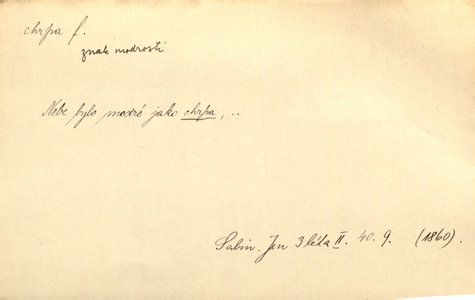 chrpa f.
znak modrosti
Nebe bylo modré jako chrpa, ..
Sabin. Jen 3 léta II. 40. 9. (1860).